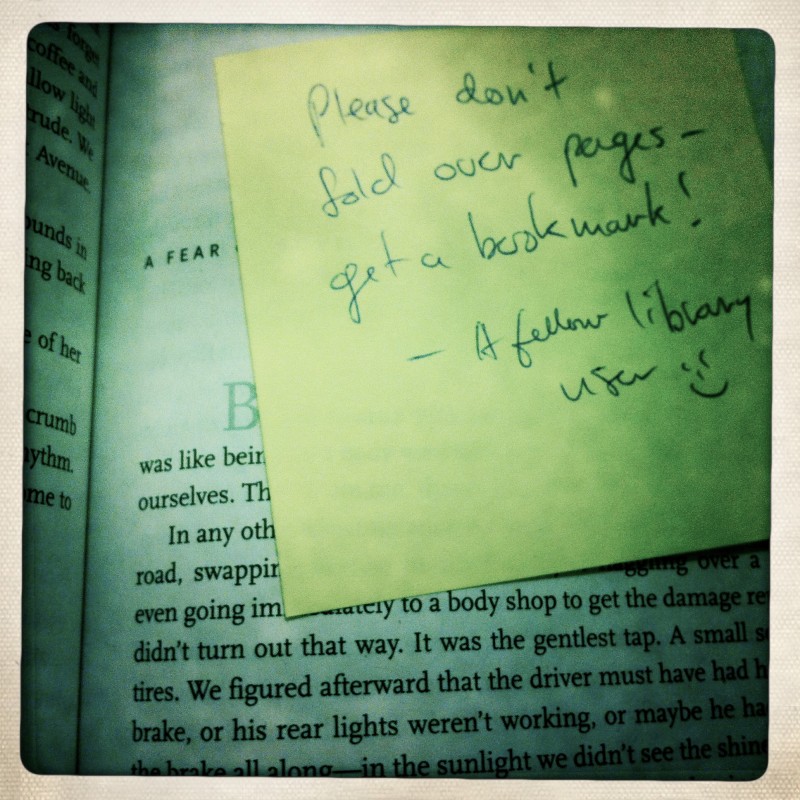 forget
coffee and
light
We
Avenue.
in
back
of her
crumb
me to
Please don't
fold over pages –
get a bookmark!
– A fellow library
user :)
A FEAR
B
was like
ourselves.
In any
road,
over a
even going to a body shop to get the damage
didn't turn out that way. It was the gentlest tap. A small
tires. We figured afterward that the driver must have had
brake, or his rear lights weren't working, or maybe he
the brake all along—in the sunlight we didn't see the